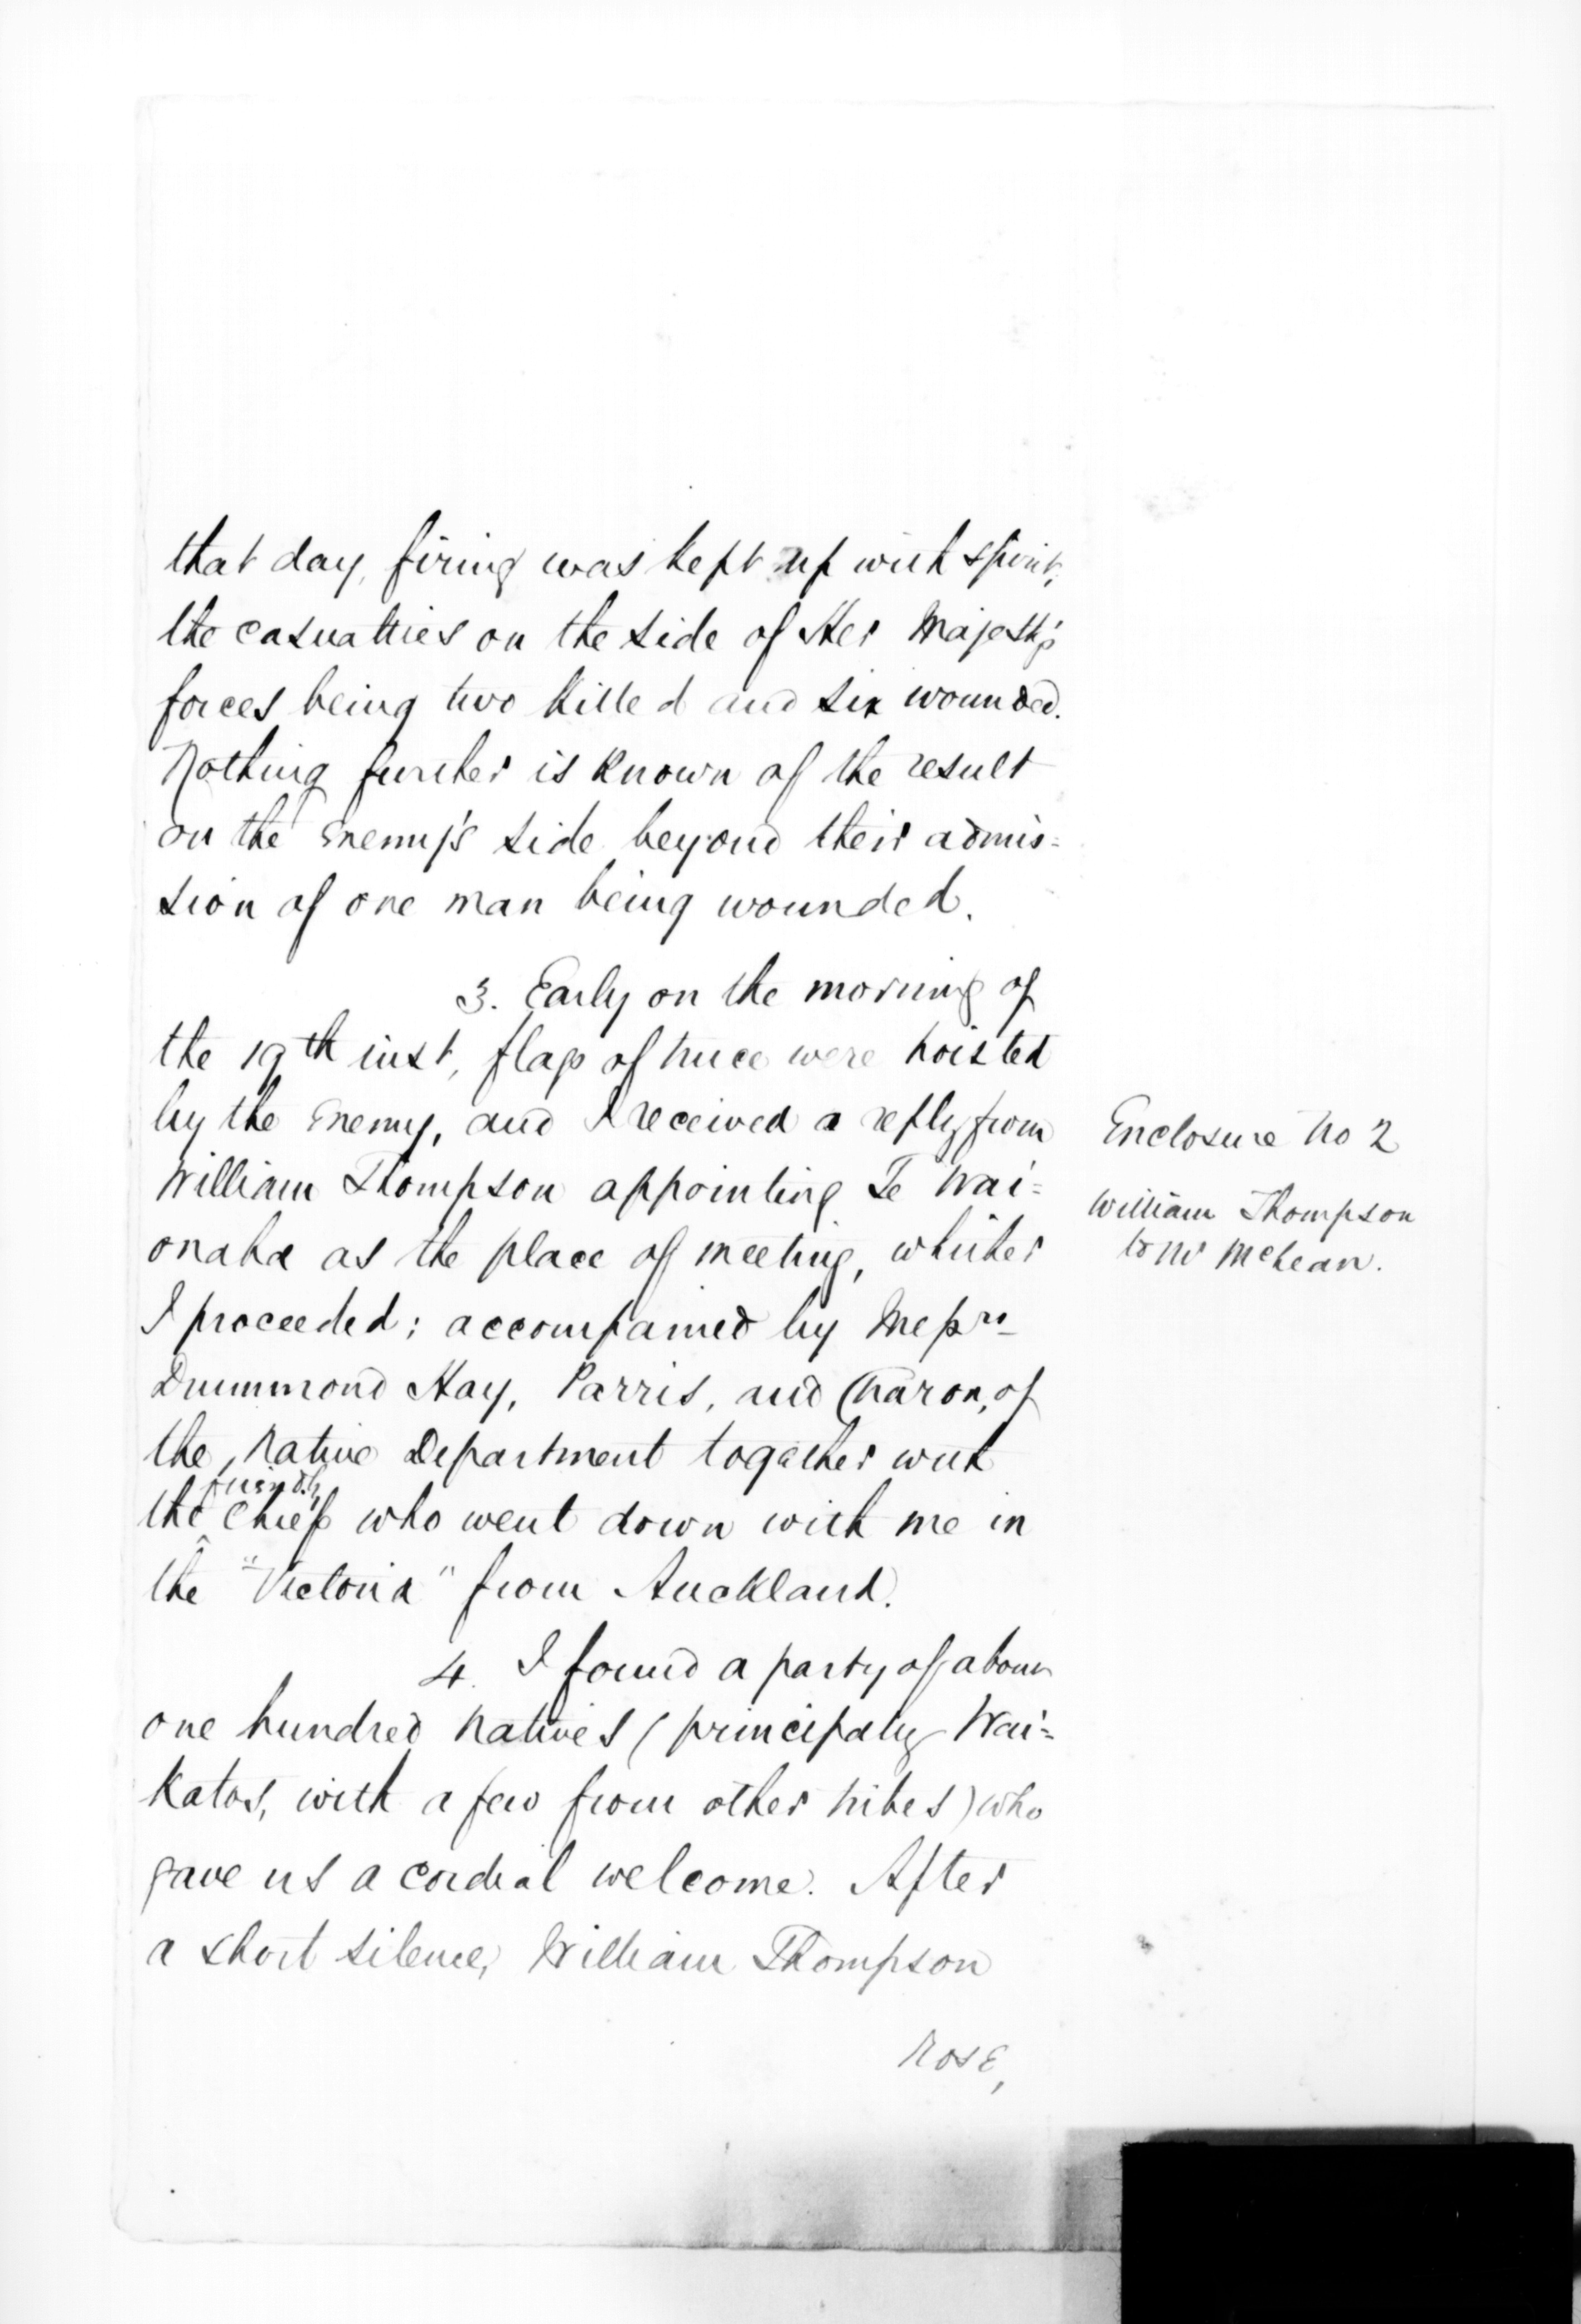 that day, firing was kept up with spirit,
the casualties on the side of Her Majesty's
forces being two killed and six wounded.
Nothing further is known of the result
on the Enemy's side beyond their admis=
sion of one man being wounded.
3. Early on the morning of
the 19th inst, flags of truce were hoisted
by the Enemy, and I received a reply from
William Thompson appointing Te Wai=
onaha as the place of meeting, whither
I proceeded; accompanied by Messrs
Drummond Hay, Parris, and of
the Native Department together with
friendly
the chiefs who went down with me in
the "Victoria" from Auckland.
4. I found a party of about
one hundred Natives (principally Wai=
katos, with a few from other tribes) who
gave us a cordial welcome. After
a short silence, William Thompson
rose,
Enclosure No 2
William Thompson
to Mr McLean.